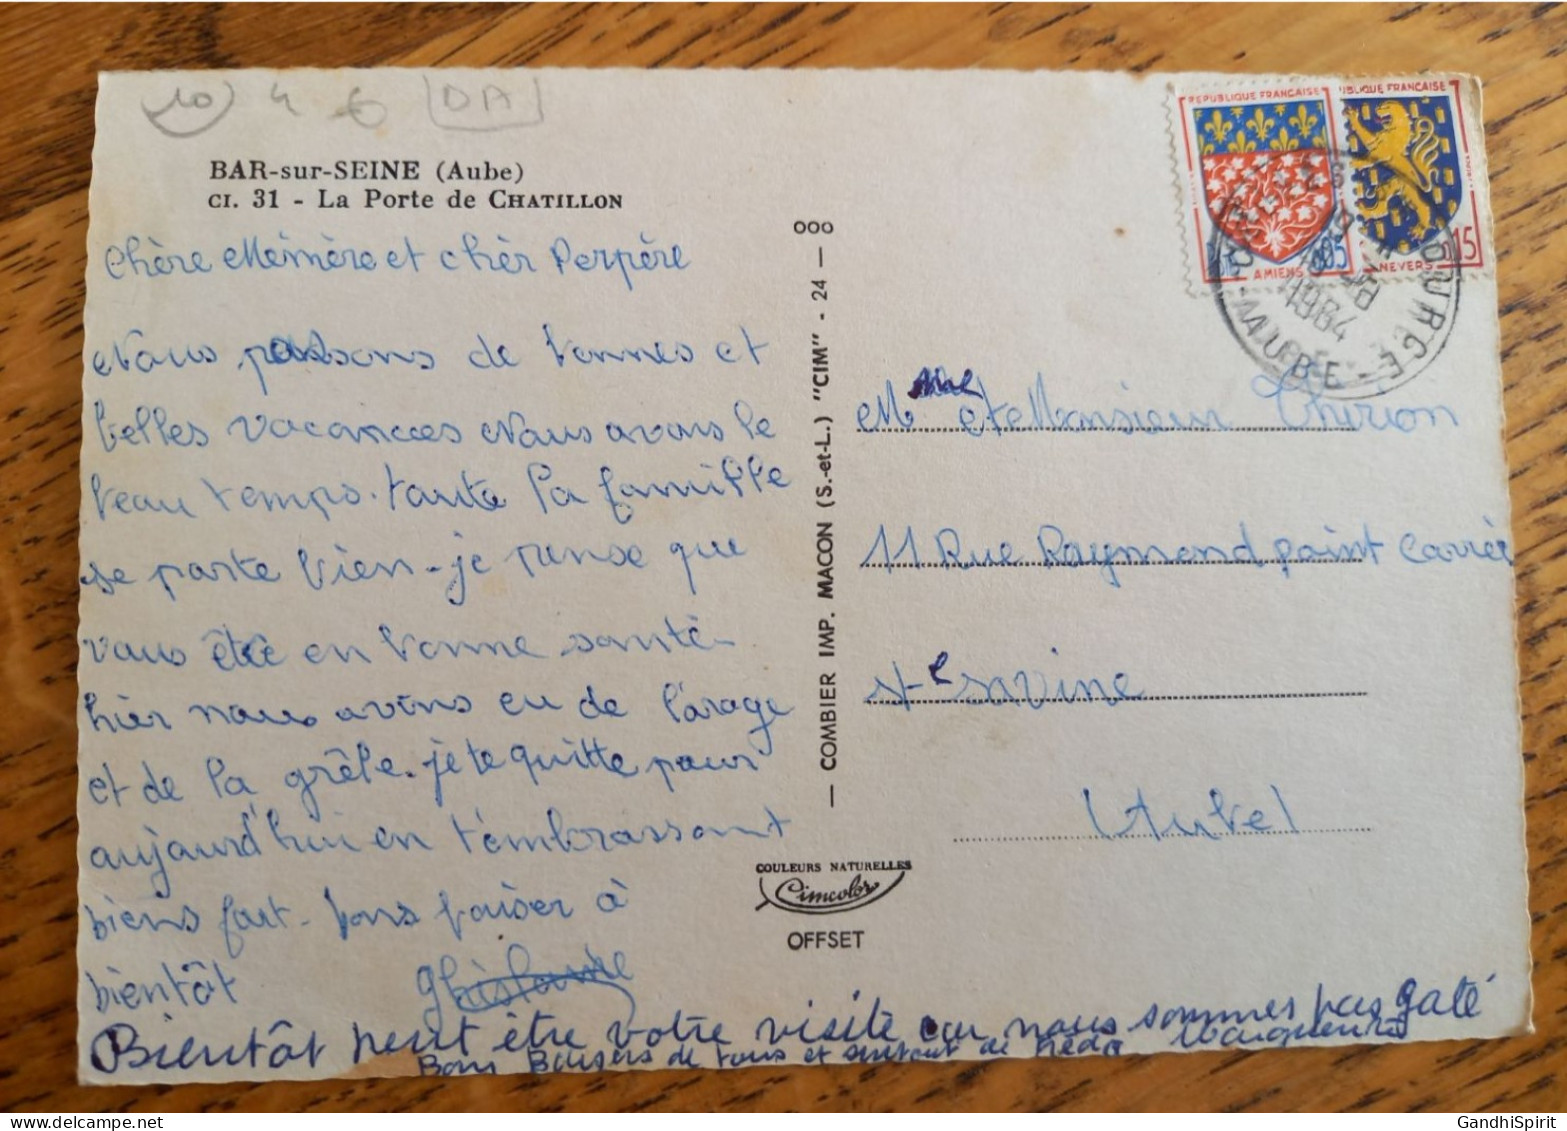 10 4 6 DA
BAR-sur-SEINE (Aube)
CI. 31 - La Porte de CHATILLON
Chère Mémère et chèr Perpère
Nous passons de bonnes et
belles vacances Nous avons le
beau temps. toute la famille
se porte bien - je pense que
vous ête en bonne santé -
hier nous avons eu de l'orage
et de la grêle. je te quitte pour
aujourd'hui en t'embrassant
biens fort - bons baiser à
bientôt Ghislaine
Bientôt peut être votre visite car nous sommes pas gaté
Bons Baisers de tous et surtout de
— COMBIER IMP. MACON (S.-et-L.) "CIM" - 24 — 000
COULEURS NATURELLES
Cimcolor
OFFSET
REPUBLIQUE FRANÇAISE
AMIENS
0,05
REPUBLIQUE FRANÇAISE
NEVERS
15
1964
AUBE
Mme et Monsieur Thirion
11 Rue Raymond point Carrée
Ste Savine
(Aube)
www.delcampe.net
GandhiSpirit